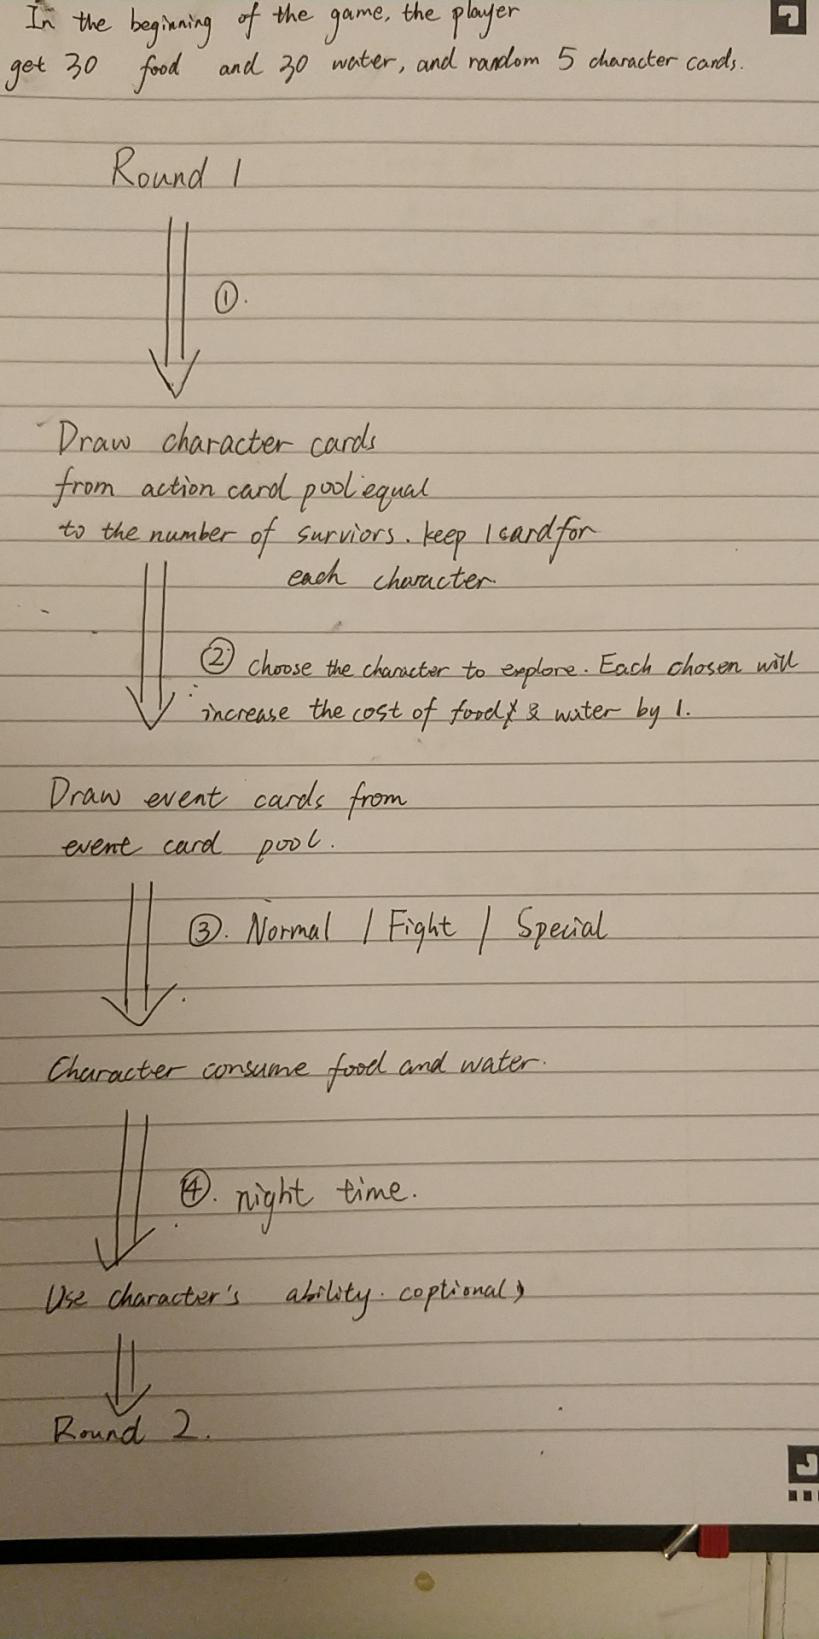 In the beginning of the game, the player
get 30 food and 30 water, and random 5 character cards.
Round 1
①.
Draw character cards
from action card pool equal
to the number of surviors. keep 1 card for
each character.
② choose the character to explore. Each chosen will
increase the cost of food & water by 1.
Draw event cards from
event card pool.
③. Normal / Fight / Special
Character consume food and water.
④. night time.
Use character's ability. (optional)
Round 2.